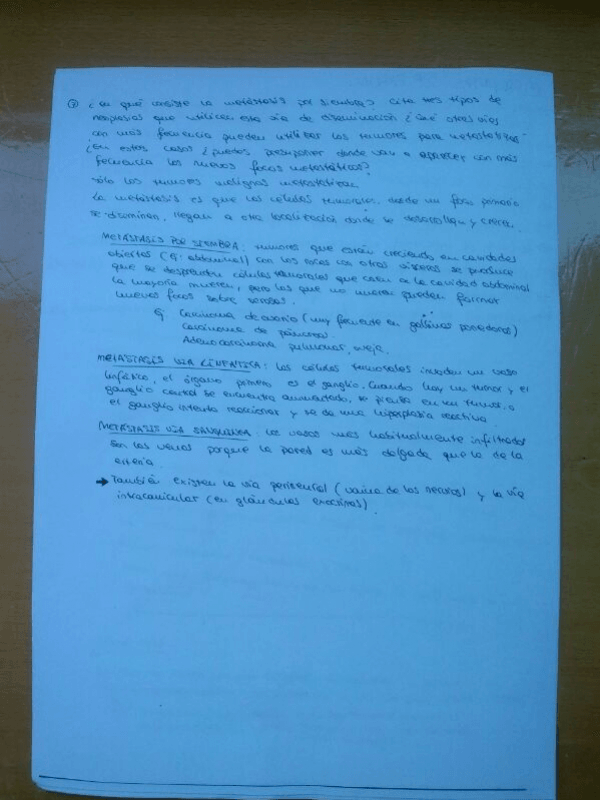 ¿En qué consiste la metástasis por siembra? Cita tres tipos de
neoplasias que utilicen esta vía de diseminación ¿Qué otras vías
con más frecuencia pueden utilizar los tumores para metastatizar
¿En estos casos ¿puedes presuponer donde van a aparecer con más
frecuencia los nuevos focos metastáticos?
Sólo los tumores malignos metastatizan
La metástasis es que las células tumorales, desde un foco primario
se diseminan, llegan a otra localización donde se desarrollan y crecen.
METÁSTASIS POR SIEMBRA: tumores que están creciendo en cavidades
abiertas (Ej: abdominal) con los roces con otras vísceras se produce
que se desprendan células tumorales que caen a la cavidad abdominal
la mayoría mueren, pero las que no mueren pueden formar
nuevos focos sobre serosas.
Ej Carcinoma de ovario (muy frecuente en gallinas ponedoras)
Carcinoma de páncreas
Adenocarcinoma pulmonar oveja.
METÁSTASIS VIA LINFÁTICA: Las células tumorales invaden un vaso
linfático, el órgano primero es el ganglio. Cuando hay un tumor y el
ganglio se encuentra aumentado, se piensa en un tumor o
el ganglio intenta reaccionar y se da una hiperplasia reactiva.
METÁSTASIS VIA SANGUINEA: Los vasos más habitualmente infiltrados
son las venas porque la pared es más delgada que la de la
arteria.
→ También existen la vía perineural (vaina de los nervios) y la vía
intracanicular (en glándulas exocrinas).